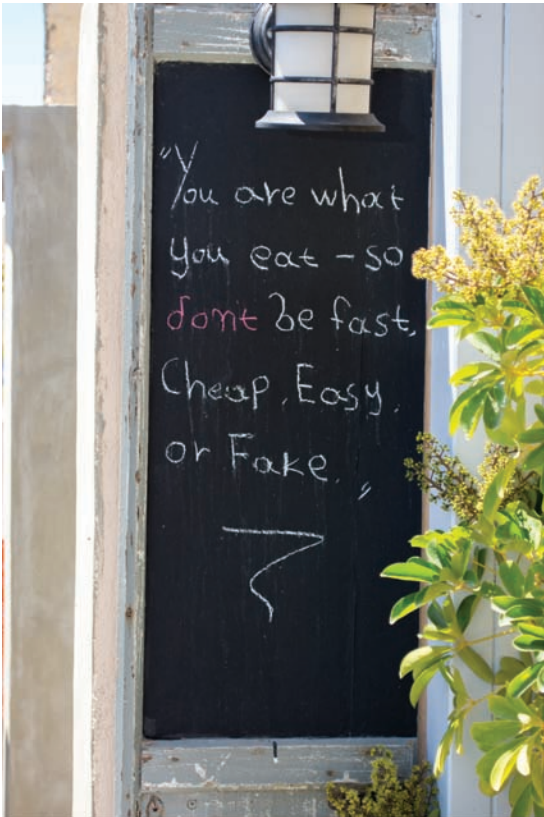 "You are what
you eat - so
dont be fast,
Cheap, Easy,
or Fake."